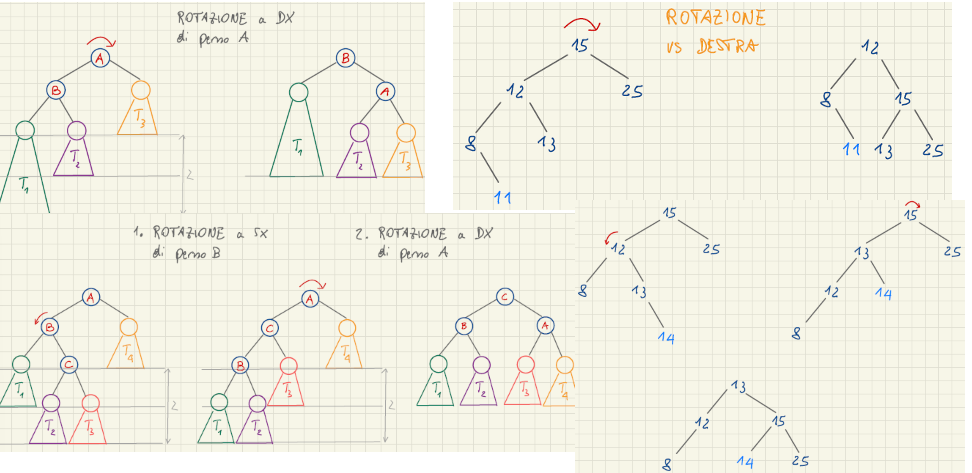 ROTAZIONE a DX
di perno A
A
B
T3
T1
T2
2
B
A
T1
T2
T3
ROTAZIONE
vs DESTRA
15
12
25
8
13
11
12
8
15
11
13
25
1. ROTAZIONE a SX
di perno B
2. ROTAZIONE a DX
di perno A
A
B
T4
T1
C
T2
T3
2
A
C
T4
B
T3
T1
T2
2
C
B
A
T1
T2
T3
T4
15
12
25
8
13
14
15
13
25
12
14
8
13
12
15
8
14
25